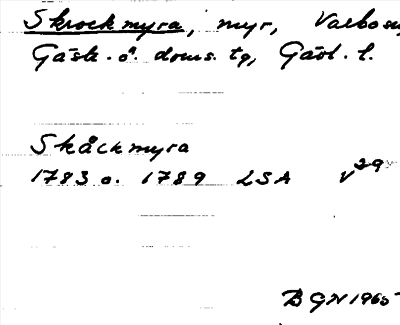 Skrockmyra, myr, Valbo sn,
Gästr. ö. doms. tg, Gävl. l.
Skåckmyra
1783 o. 1789 LSA V29
BGN 1965